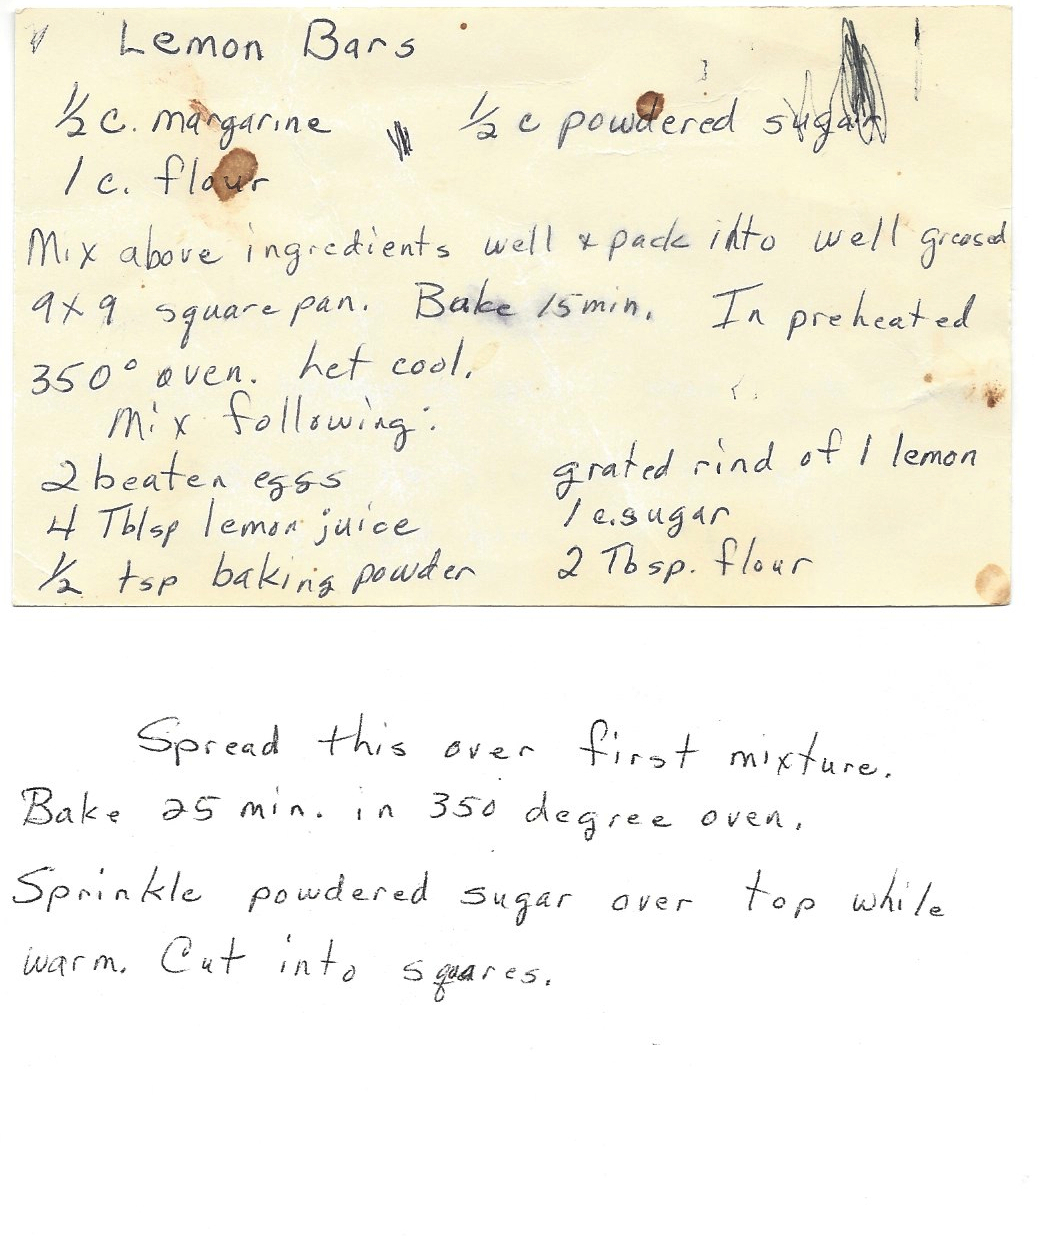 Lemon Bars
½ c. margarine ½ c powdered sugar
1 c. flour
Mix above ingredients well & pack into well greased
9x9 square pan. Bake 15 min. In preheated
350° oven. Let cool.
Mix following:
2 beaten eggs grated rind of 1 lemon
4 Tblsp lemon juice 1 c. sugar
½ tsp baking powder 2 Tbsp. flour
Spread this over first mixture.
Bake 25 min. in 350 degree oven.
Sprinkle powdered sugar over top while
warm. Cut into squares.